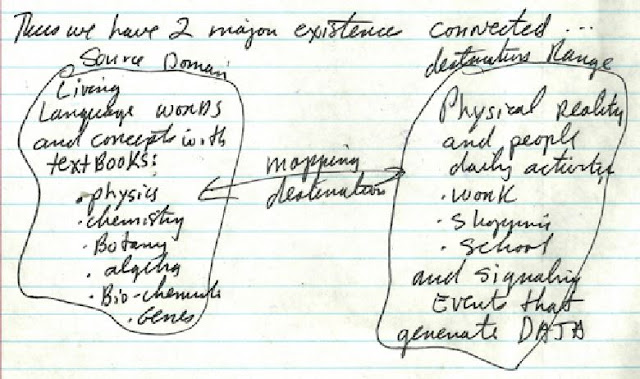 Thus we have 2 major existence connected ...
Source Domain
Living
Language words
and concepts with
textBOOKS:
• physics
• chemistry
• Botany
• algebra
• Bio-chemicals
• Genes
mapping
destination
destination Range
Physical Reality
and people
daily activity
• WORK
• Shopping
• School
and signaling
Events that
generate DATA